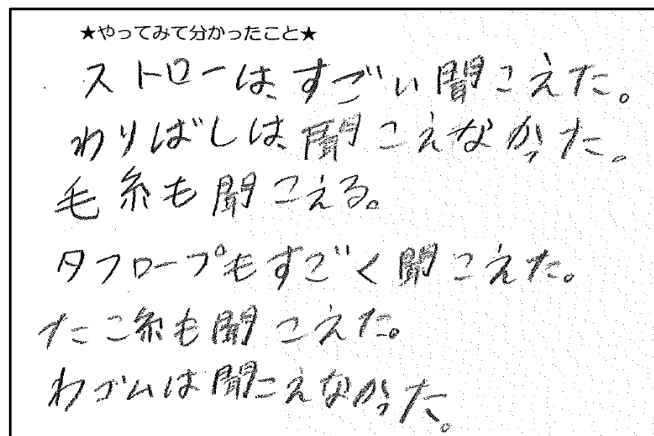 ★やってみて分かったこと★
ストローは、すごい聞こえた。
わりばしは、聞こえなかった。
毛糸も聞こえる。
タフロープもすごく聞こえた。
たこ糸も聞こえた。
わゴムは聞こえなかった。